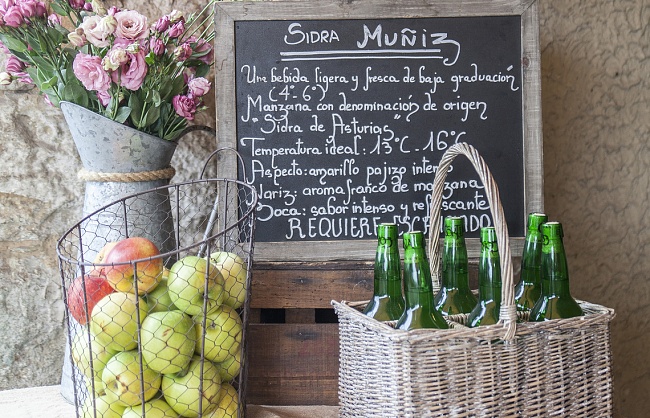 SIDRA MUÑIZ
Una bebida ligera y fresca de baja graduación
(4°-6°)
Manzana con denominación de origen
"Sidra de Asturias"
Temperatura ideal: 13°C - 16°C
Aspecto: amarillo pajizo intenso
Nariz: aroma franco de manzana
Boca: sabor intenso y refrescante
REQUIERE ESCANCIADO